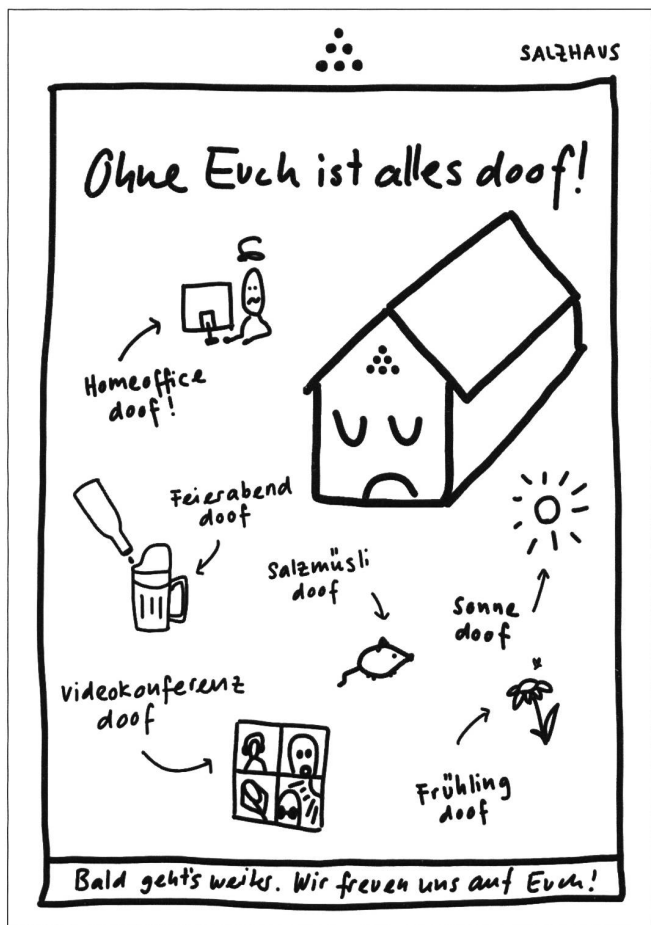 SALZHAUS
Ohne Euch ist alles doof!
Homeoffice
doof!
Feierabend
doof
Salzmüsli
doof
Sonne
doof
Videokonferenz
doof
Frühling
doof
Bald geht's weiter. Wir freuen uns auf Euch!